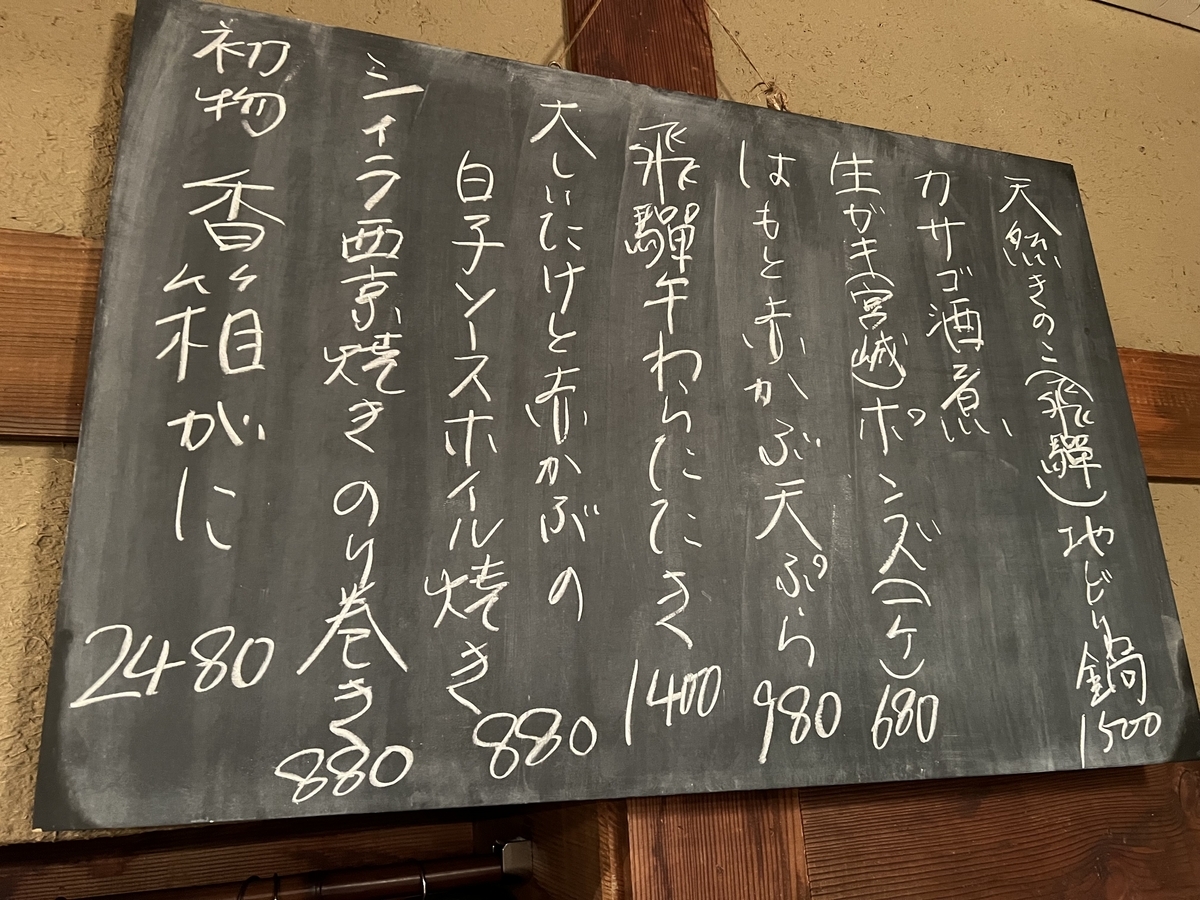 天然きのこ(飛驒)地どり鍋 1500
カサゴ酒煮
生ガキ(宮城)ポンズ(一ケ) 680
はもと赤かぶ天ぷら 980
飛驒牛わらたたき 1400
大しいたけと赤かぶの
白子ソースホイル焼き 880
シイラ西京焼きのり巻き 880
初物 香箱がに 2480